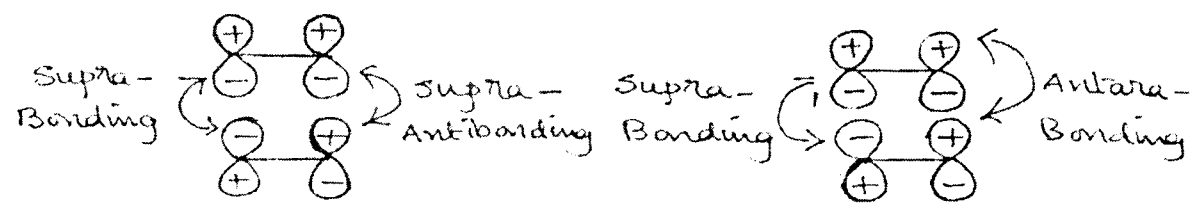 + +
- -
- +
+ -
Supra-
Bonding
Supra-
Antibonding
+ +
- -
- +
+ -
Supra-
Bonding
Antara-
Bonding